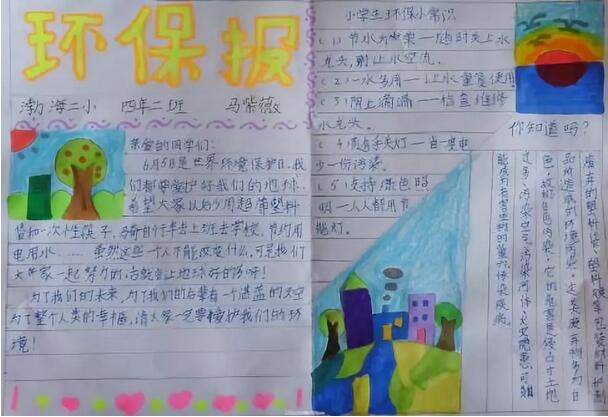 环保报
渤海二小 四年二班 马紫薇
亲爱的同学们:
6月5日是世界环境保护日,我
们都要爱护好我们的地球,
希望大家以后少用超薄塑料
袋和一次性筷子,
骑自行车去上班去学校,节约用
电用水……虽然这些一个人不能改变什么,可是我们
大家一起努力的话就会让地球好的多呀!
为了我们的未来,为了我们的后辈有一个湛蓝的天空
为了整个人类的幸福,请大家一定要接护我们的环
境!
小学生环保小常识
(1)节水为荣——随时关上水
龙头,别让水空流。
(2)一水多用——让水重复使用
(3)阻止滴漏——检查维修
水龙头。
(4)随手关灯——省一度电
少一份污染。
(5)支持绿色照
明——人人都用节
能灯。
你知道吗?
废弃的塑料袋、塑料膜等包装材料
和所造成的环境污染,
色,故称白色污染,它的危害是侵占土地
过多、污染空气、污染河体、火灾隐患、可能
能成为有害生物的巢穴,传染疾病。